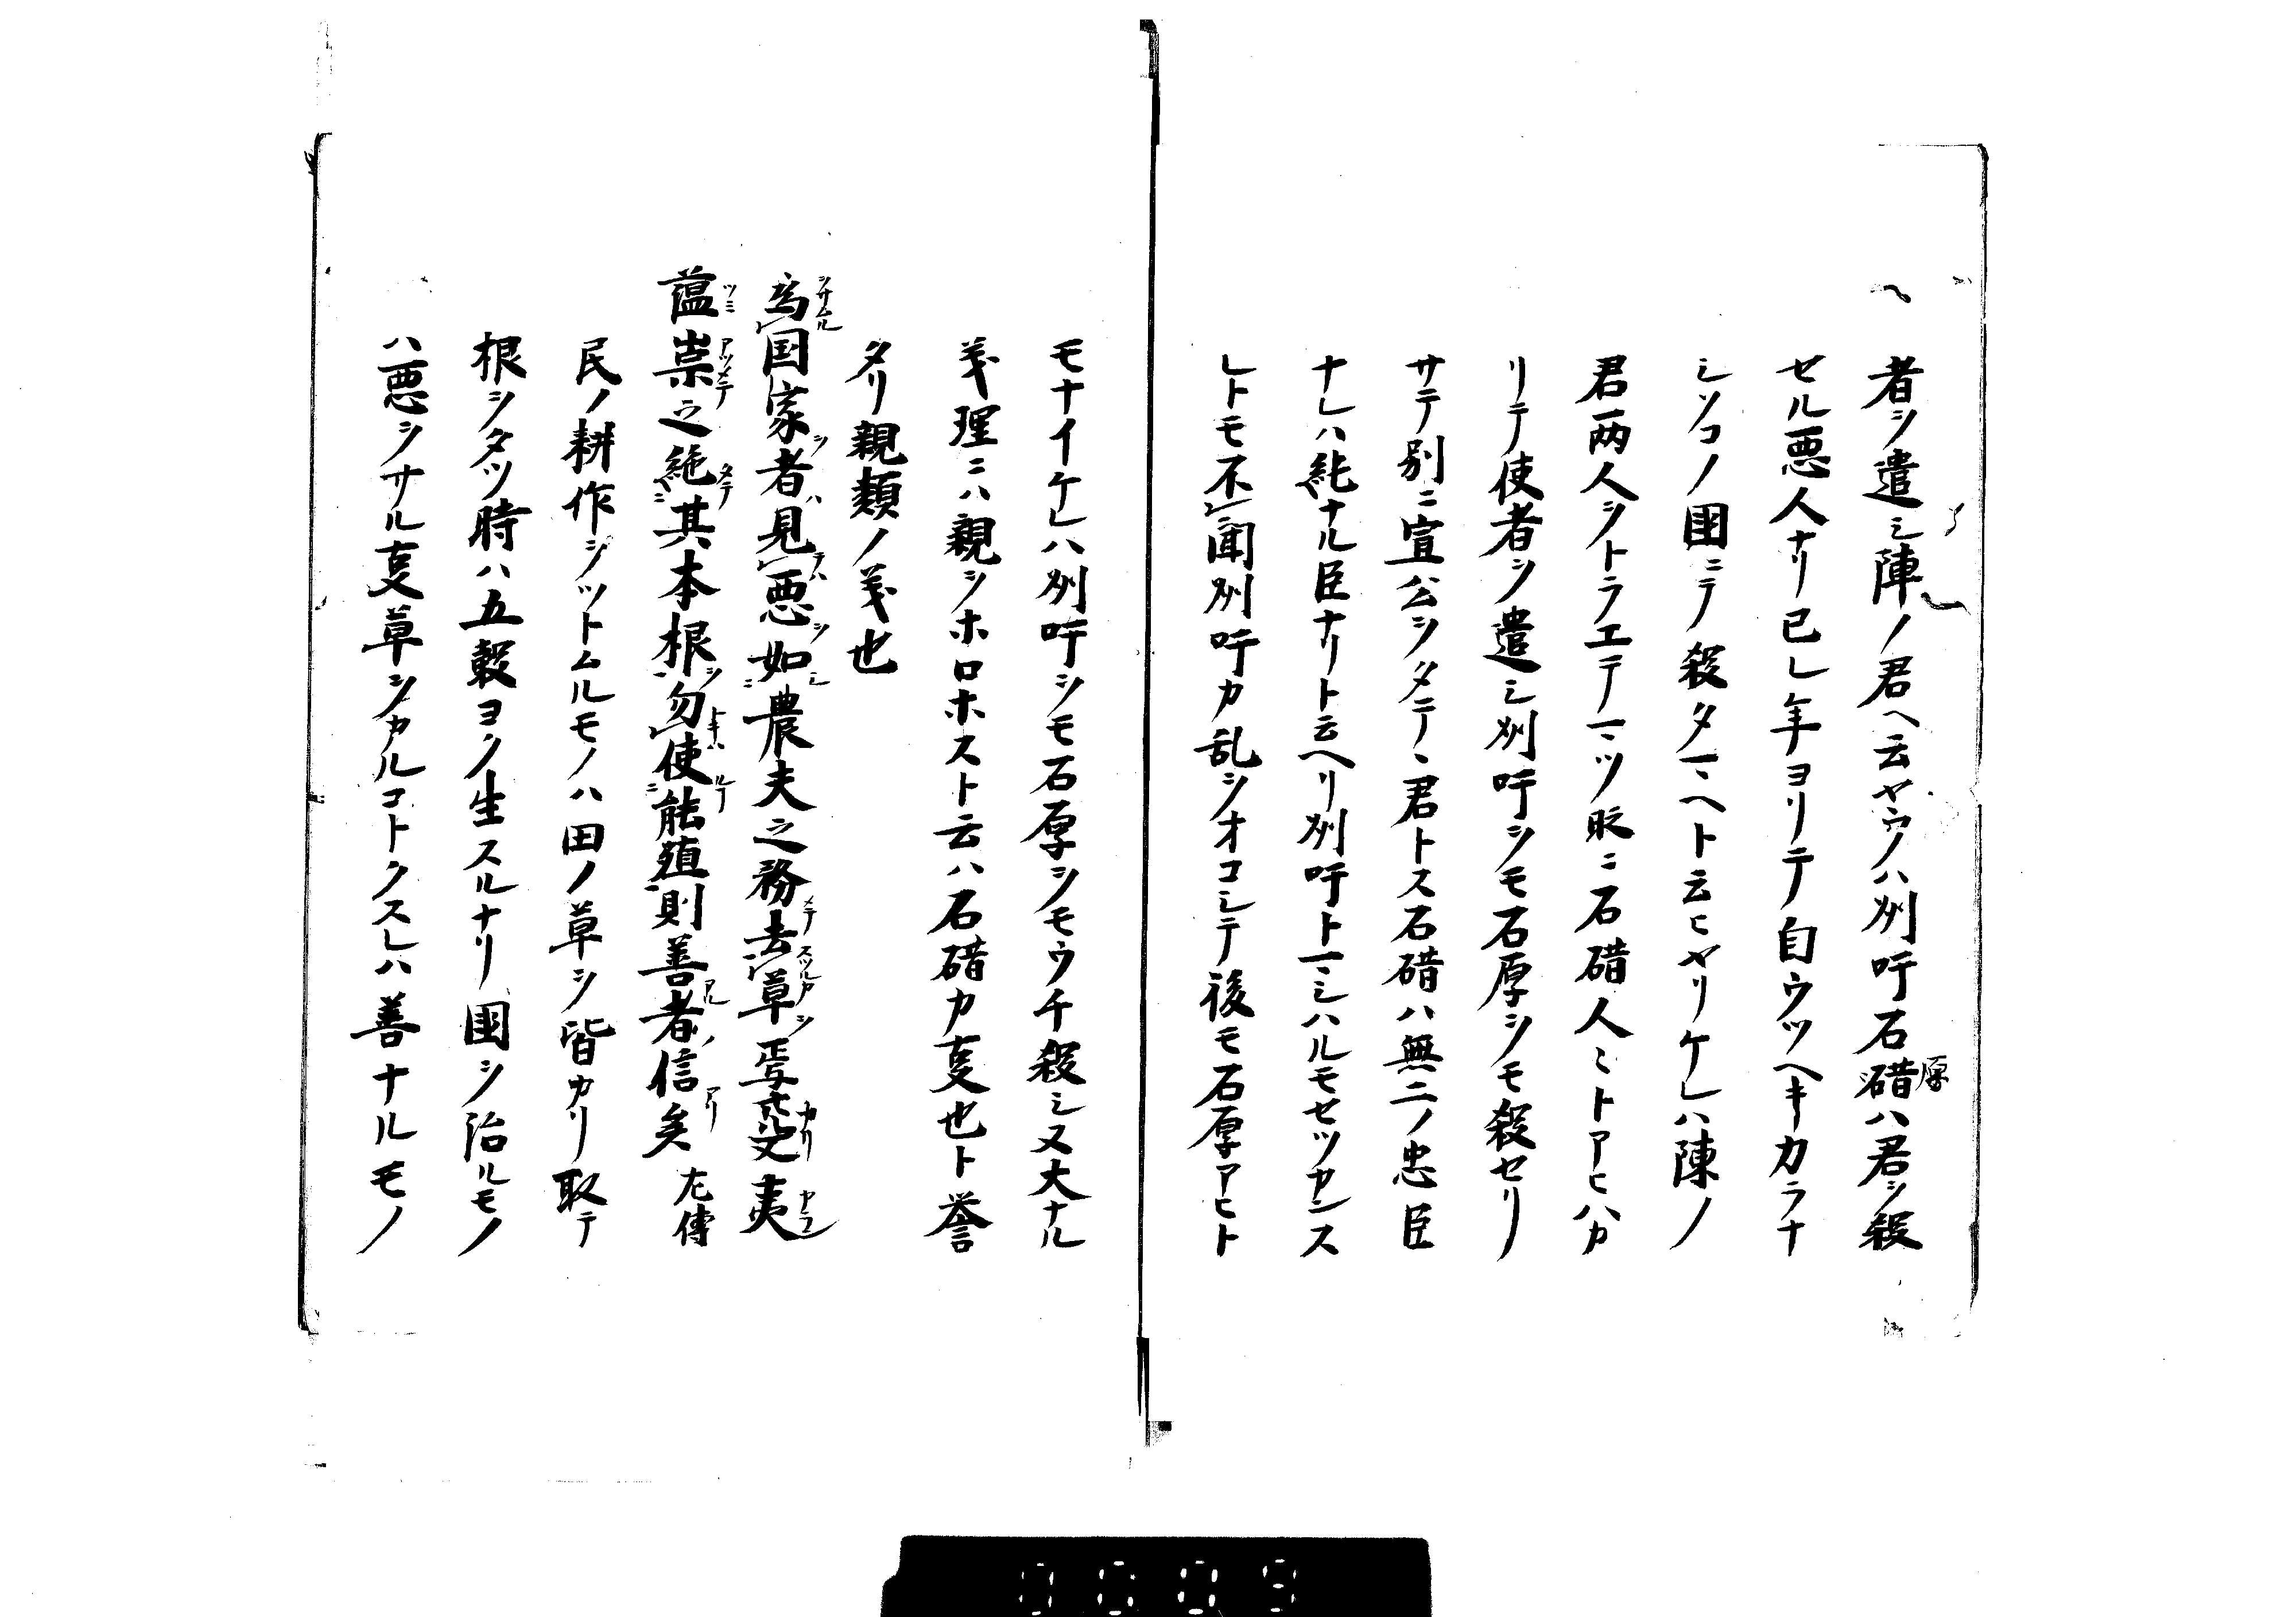 者ヲ遣シ陳ノ君ヘ云ヤウハ州吁石碏ハ君ヲ殺
原
セル悪人ナリ已レ年ヨリテ自ウツヘキカラナ
シソコノ國ニテ殺タマヘト云ヒヤリケレハ陳ノ
君両人ヲトラエテマツ此ニ石碏人ミトアヒハカ
リテ使者ヲ遣シ州吁ヲモ石厚ヲモ殺セリ
サテ別ニ宣公ヲタテヽ君トス石碏ハ無二ノ忠臣
ナレハ純ナル臣ナリト云ヘリ州吁トマシハルモセツカンス
レトモ不聞州吁カ乱ヲオコシテ後モ石厚アヒト
モナイケレハ州吁ヲモ石厚ヲモウチ殺シ又大ナル
義理ニハ親ヲホロホスト云ハ石碏カ叓也ト誉
タリ親類ノ義也
為国家者見悪如農夫之務去草焉芟夷
薀崇之絶其本根勿使能殖則善者信矣 左傳
民ノ耕作ヲツトムルモノハ田ノ草ヲ皆カリ取テ
根ヲタツ時ハ五穀ヨク生スルナリ國ヲ治ルモノ
ハ悪ヲサル叓草ヲカルコトクスレハ善ナルモノ
0009